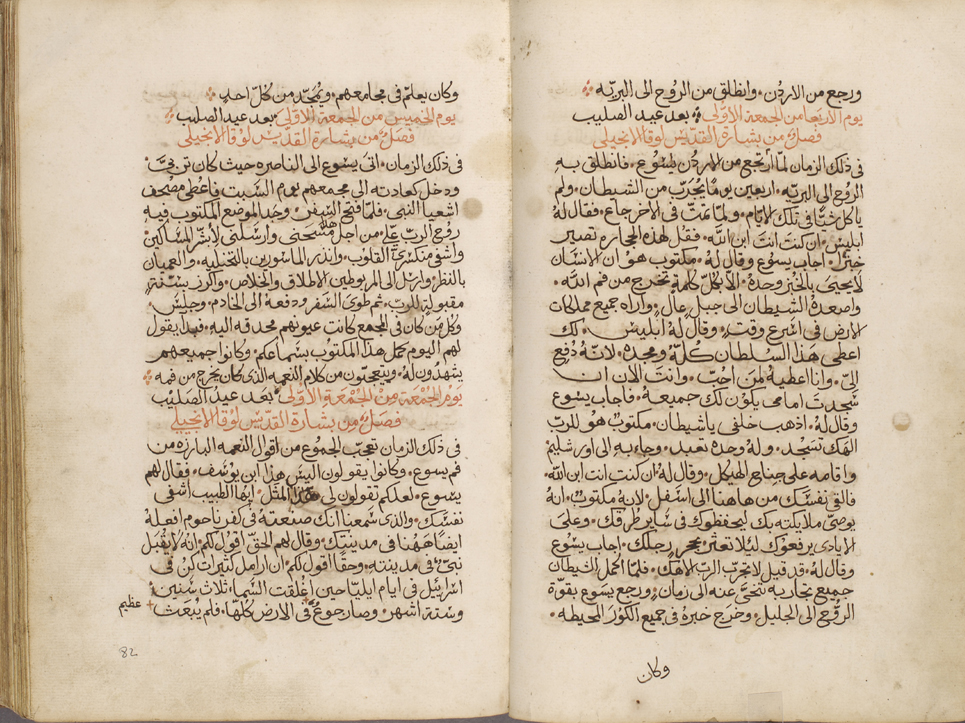 ورجع من الاردن. وانطلق من الروح الى البريه
يوم الاربعا من الجمعة الاولى بعد عيد الصليب
فصل من بشارة القديس لوقا الانجيلي
في ذلك الزمان لما ارتجع من الاردن يسوع. فانطلق به
الروح الى البريه. اربعين يوماً يجرب من الشيطان. ولم
ياكل شيًا في تلك الايام. ولما تمت في الاخر جاع. فقال له
ابليس. ان كنت انت ابن الله. فقل لهذه الحجاره تصير
خبزاً. اجاب يسوع وقال له. مكتوب هو ان الانسان
لا يحيى بالخبز وحده. الا بكل كلمة تخرج من فم الله.
واصعده الشيطان الى جبل عال. واراه جميع مملكات
الارض في اسرع وقت. وقال له ابليس. لك
اعطي هذا السلطان كله ومجده. لانه دفع
الي. وانا اعطيه لمن احب. وانت الان ان
سجدت امامي يكون لك جميعه. فاجاب يسوع
وقال له. اذهب خلفي يا شيطان. مكتوب هو للرب
الهك تسجد. وله وحده تعبد. وجا به الى اورشليم
واقامه على جناح الهيكل. وقال له ان كنت انت ابن الله.
فالقي نفسك من هاهنا الى اسفل. لانه مكتوب. انه
يوصي ملايكته بك ليحفظوك في ساير طرقك. وعلى
الايادي يرفعوك ليلا تعثر بحجر رجلك. اجاب يسوع
وقال له. قد قيل لا تجرب الرب الاهك. فلما اكمل الشيطان
جميع تجاربه تنحى عنه الى زمان. ورجع يسوع بقوة
الروح الى الجليل. وخرج خبره في جميع الكور المحيطه.
وكان
وكان يعلم في مجامعهم. ويمجد من كل احد
يوم الخميس من الجمعة الاولى بعد عيد الصليب
فصل من بشارة القديس لوقا الانجيلي
في ذلك الزمان. اتى يسوع الى الناصره حيث كان تربى.
ودخل كعادته الى مجمعهم يوم السبت فاعطي مصحف
اشعيا النبي. فلما فتح السفر. وجد الموضع المكتوب فيه
روح الرب علي. من اجل هذا مسحني وارسلني لابشر المساكين.
واشفي منكسري القلوب. وانذر الماسورين بالتخليه. والعميان
بالنظر وارسل الى المربوطين الاطلاق والخلاص. واكرز بسنة
مقبولة للرب. ثم طوى السفر ودفعه الى الخادم. وجلس
وكل من كان في المجمع كانت عيونهم محدقه اليه. فبدا يقول
لهم اليوم كمل هذا المكتوب بسماعكم. وكانوا جميعهم
يشهدون له. ويتعجبون من كلام النعمه الذي كان يخرج من فمه
يوم الجمعة من الجمعة الاولى بعد عيد الصليب
فصل من بشارة القديس لوقا الانجيلي
في ذلك الزمان تعجب الجموع من اقوال النعمه البارزه من
فم يسوع. وكانوا يقولون اليس هذا ابن يوسف. فقال لهم
يسوع. لعلكم تقولون لي هذا المثل. ايها الطبيب اشفي
نفسك. والذي سمعنا انك صنعته في كفرناحوم افعله
ايضاً ههنا في مدينتك. وقال لهم الحق اقول لكم انه لا يقبل
نبي في مدينته. وحقا اقول لكم ان ارامل كثيرات كن في
اسرئيل في ايام ايليا حين اغلقت السما ثلاث سنين
وستة اشهر. وصار جوع في الارض كلها. فلم يبعث
عظيم
82